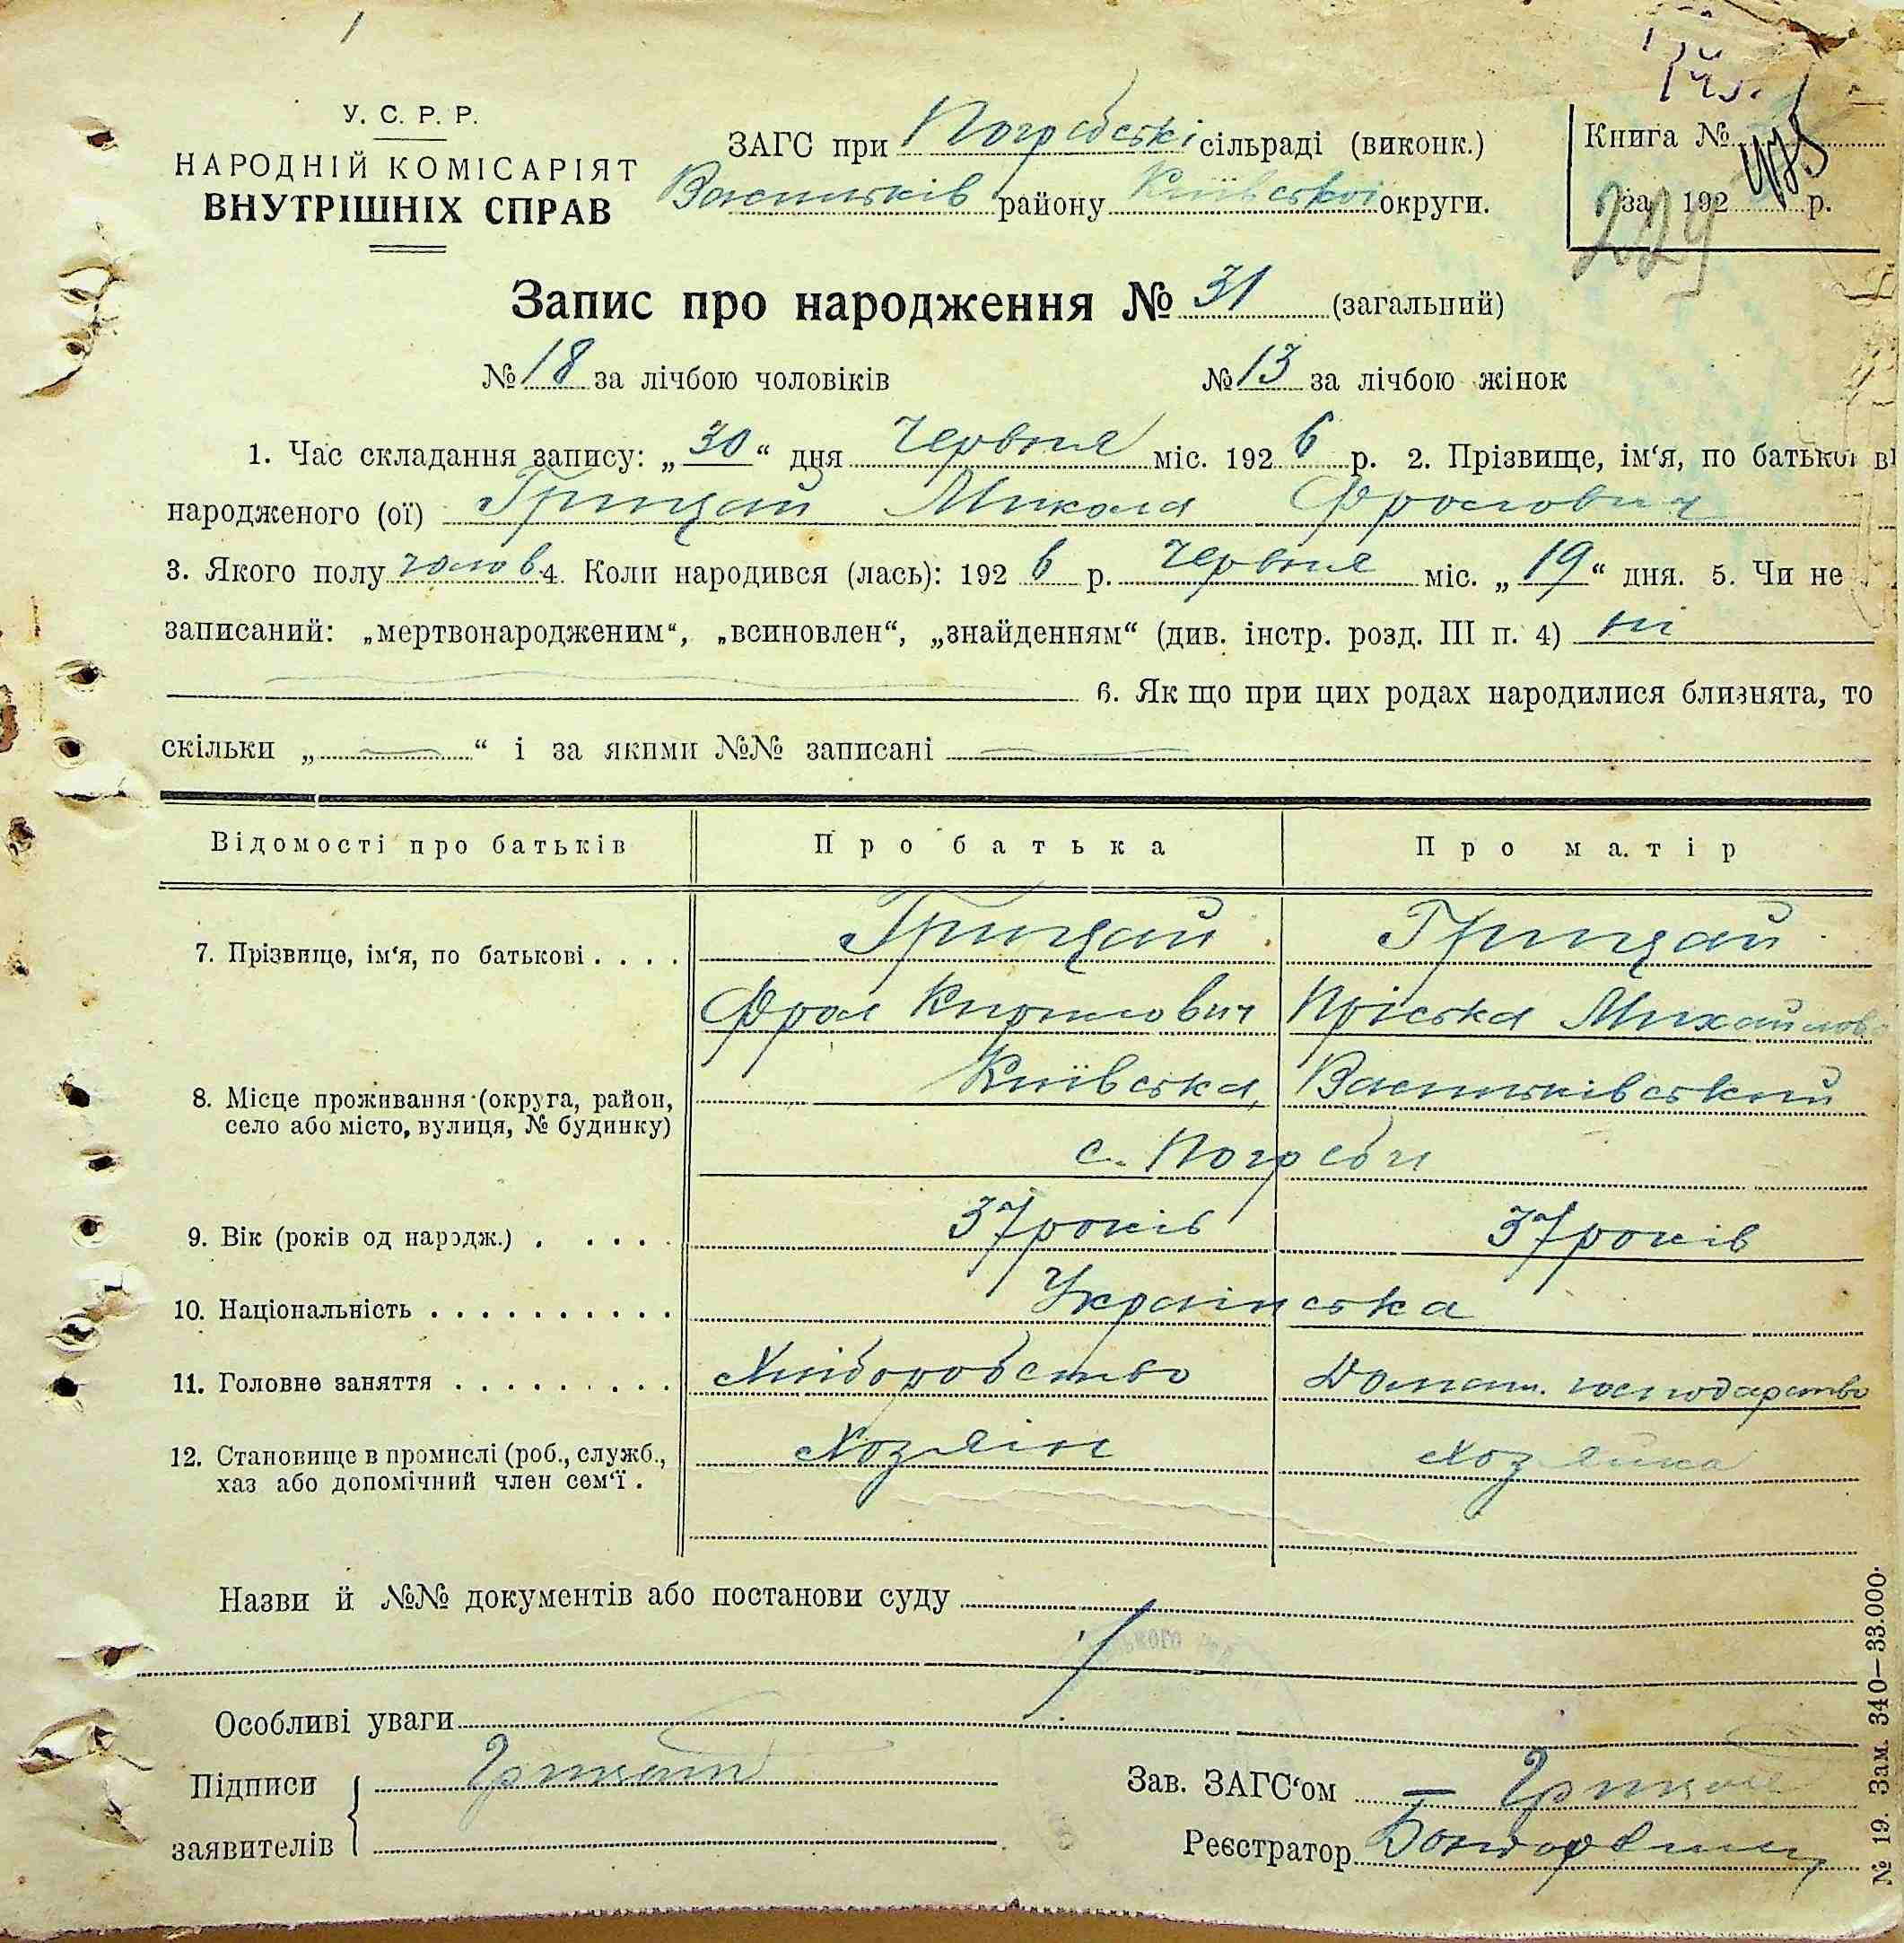 У. С. Р. Р.
НАРОДНІЙ КОМІСАРІЯТ
ВНУТРІШНІХ СПРАВ
ЗАГС при Погребській сільраді (виконк.)
Васильків району Київської округи.
Книга № 475
за 192 р.
229
Запис про народження № 31 (загальний)
№ 18 за лічбою чоловіків № 13 за лічбою жінок
1. Час складання запису: „30“ дня Червня міс. 1926 р. 2. Прізвище, ім‘я, по батькові
народженого (ої) Грицай Микола Фролович
3. Якого полу чолов. 4. Коли народився (лась): 1926 р. Червня міс. „19“ дня. 5. Чи не
записаний: „мертвонародженим“, „всиновлен“, „знайденням“ (див. інстр. розд. III п. 4) ні
6. Як що при цих родах народилися близнята, то
скільки „ “ і за якими №№ записані
Відомості про батьків Про батька Про матір
7. Прізвище, ім‘я, по батькові . . . . Грицай Грицай
Фрол Кирилович Пріська Михайлов
8. Місце проживання (округа, район, село або місто, вулиця, № будинку) Київська, Васильківський
с. Погреби
9. Вік (років од народж.) . . . . . 37 років 37 років
10. Національність . . . . . . . . . . Українська
11. Головне заняття . . . . . . . . . Хліборобство Домаш. господарство
12. Становище в промислі (роб., служб., хаз або допомічний член сем‘ї . Хозяін Хозяйка
Назви й №№ документів або постанови суду
Особливі уваги
Підписи Грицай Зав. ЗАГС‘ом Грицай
заявителів Реєстратор
№ 19. Зам. 340—33.000.